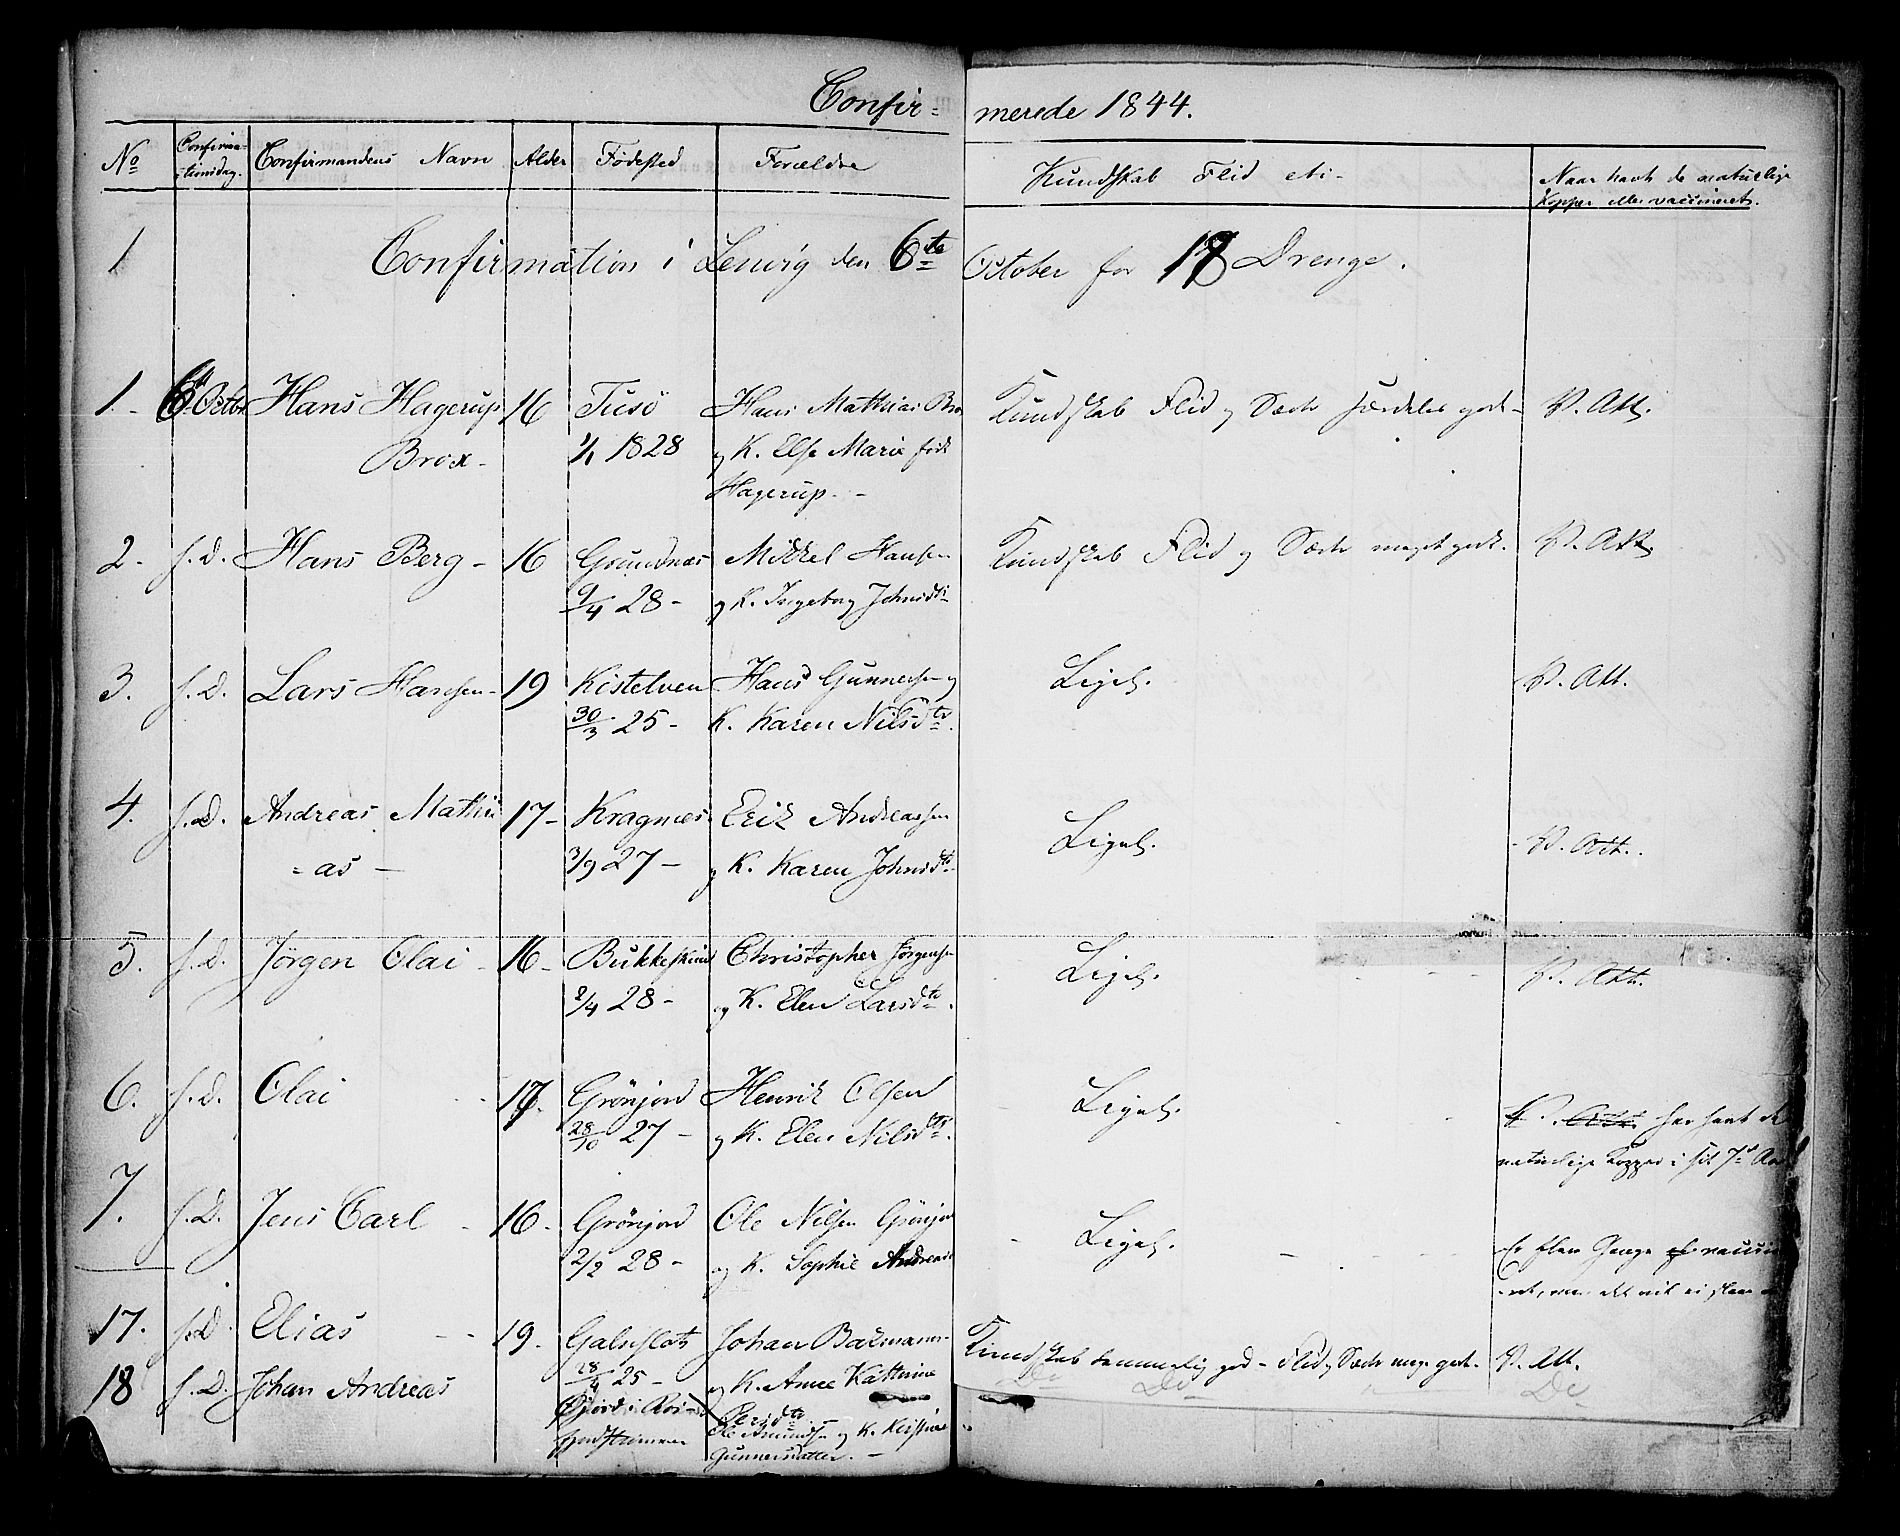 Confir- merede 1844.
No Confirmationsdag. Confirmandens Navn Alder Fødested Forældre Kundskab Flid etc- Naar havt de naturlige
Kopper eller vaccineret.
1 Confirmation i Lenvig den 6te October for 18 Drenge.
1. 6 Octbr Hans Hagerup 16 Tusö Hans Mathias Brox Kundskab Flid og Sæder særdeles godt- V. Att.
Brox- 1/1 1828 og K. Else Marie født
Hagerup.-
2. s.D. Hans Berg- 16 Grundnæs Mikkel Hansen Kundskab Flid og Sæder meget godt. V. Att.
9/4 28- og K. Ingeborg Johnsdtr
3. s.D. Lars Hansen- 19 Kistelven Hans Gunnersen og Ligel. V. Att.
30/3 25- K. Karen Nilsdtr.
4. s.D. Andreas Mathi 17- Kragnæs Erik Andreassen Ligel. V. Att.
-as- 3/9 27- og K. Karen Johnsdtr
5. s.D. Jörgen Olai- 16- Bukkeskind Christopher Jörgensen Ligel. V. Att.
2/4 28- og K. Elen Larsdtr.
6. s.D. Olai 17. Grönjord Henrik Olsen Ligel. V. Att. har havt de
28/10 27- og K. Elen Nilsdtr. naturlige Kopper i sit 7de Aar
7. s.D. Jens Carl- 16- Grönjord Ole Nilsen Grönjord Ligel. Er flere Gange vaccin
2/2 28- og K. Sophie Andreasd -eret, men det vil ei slaae an
17. s.D. Elias 19. Johan Bakmann Kundskab temmelig god- Flid og Sæder meget godt. V. Att.
28/4 25- og K. Anne Kathrine
18 s.D. Johan Andreas Persdtr. Do Do Do
Ole Amunds- og K. Kirstine
Gunnersdatter.-